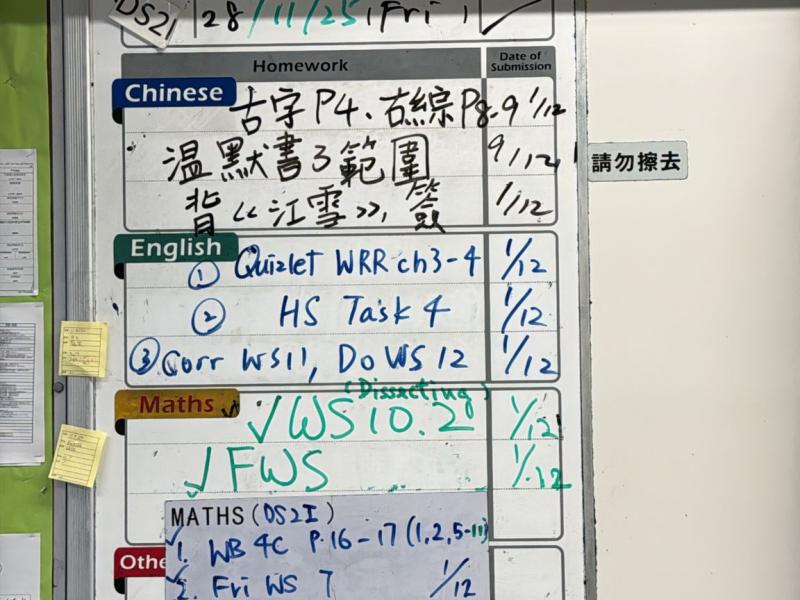 DS2I 28/11/25 (Fri)
Homework Date of Submission
Chinese 古字 P4、右綜 P8-9 1/12
溫默書3範圍 9/12
背《江雪》,簽 1/12
English
① Quizlet WRR ch3-4 1/12
② HS Task 4 1/12
③ Corr WS11, Do WS 12 1/12
(Dissecting)
Maths ✓WS 10.2 1/12
✓FWS 1/12
MATHS (DS2I)
✓1. WB 4C P.16-17 (1,2,5-11)
✓2. Fri WS 7 1/12
請勿擦去